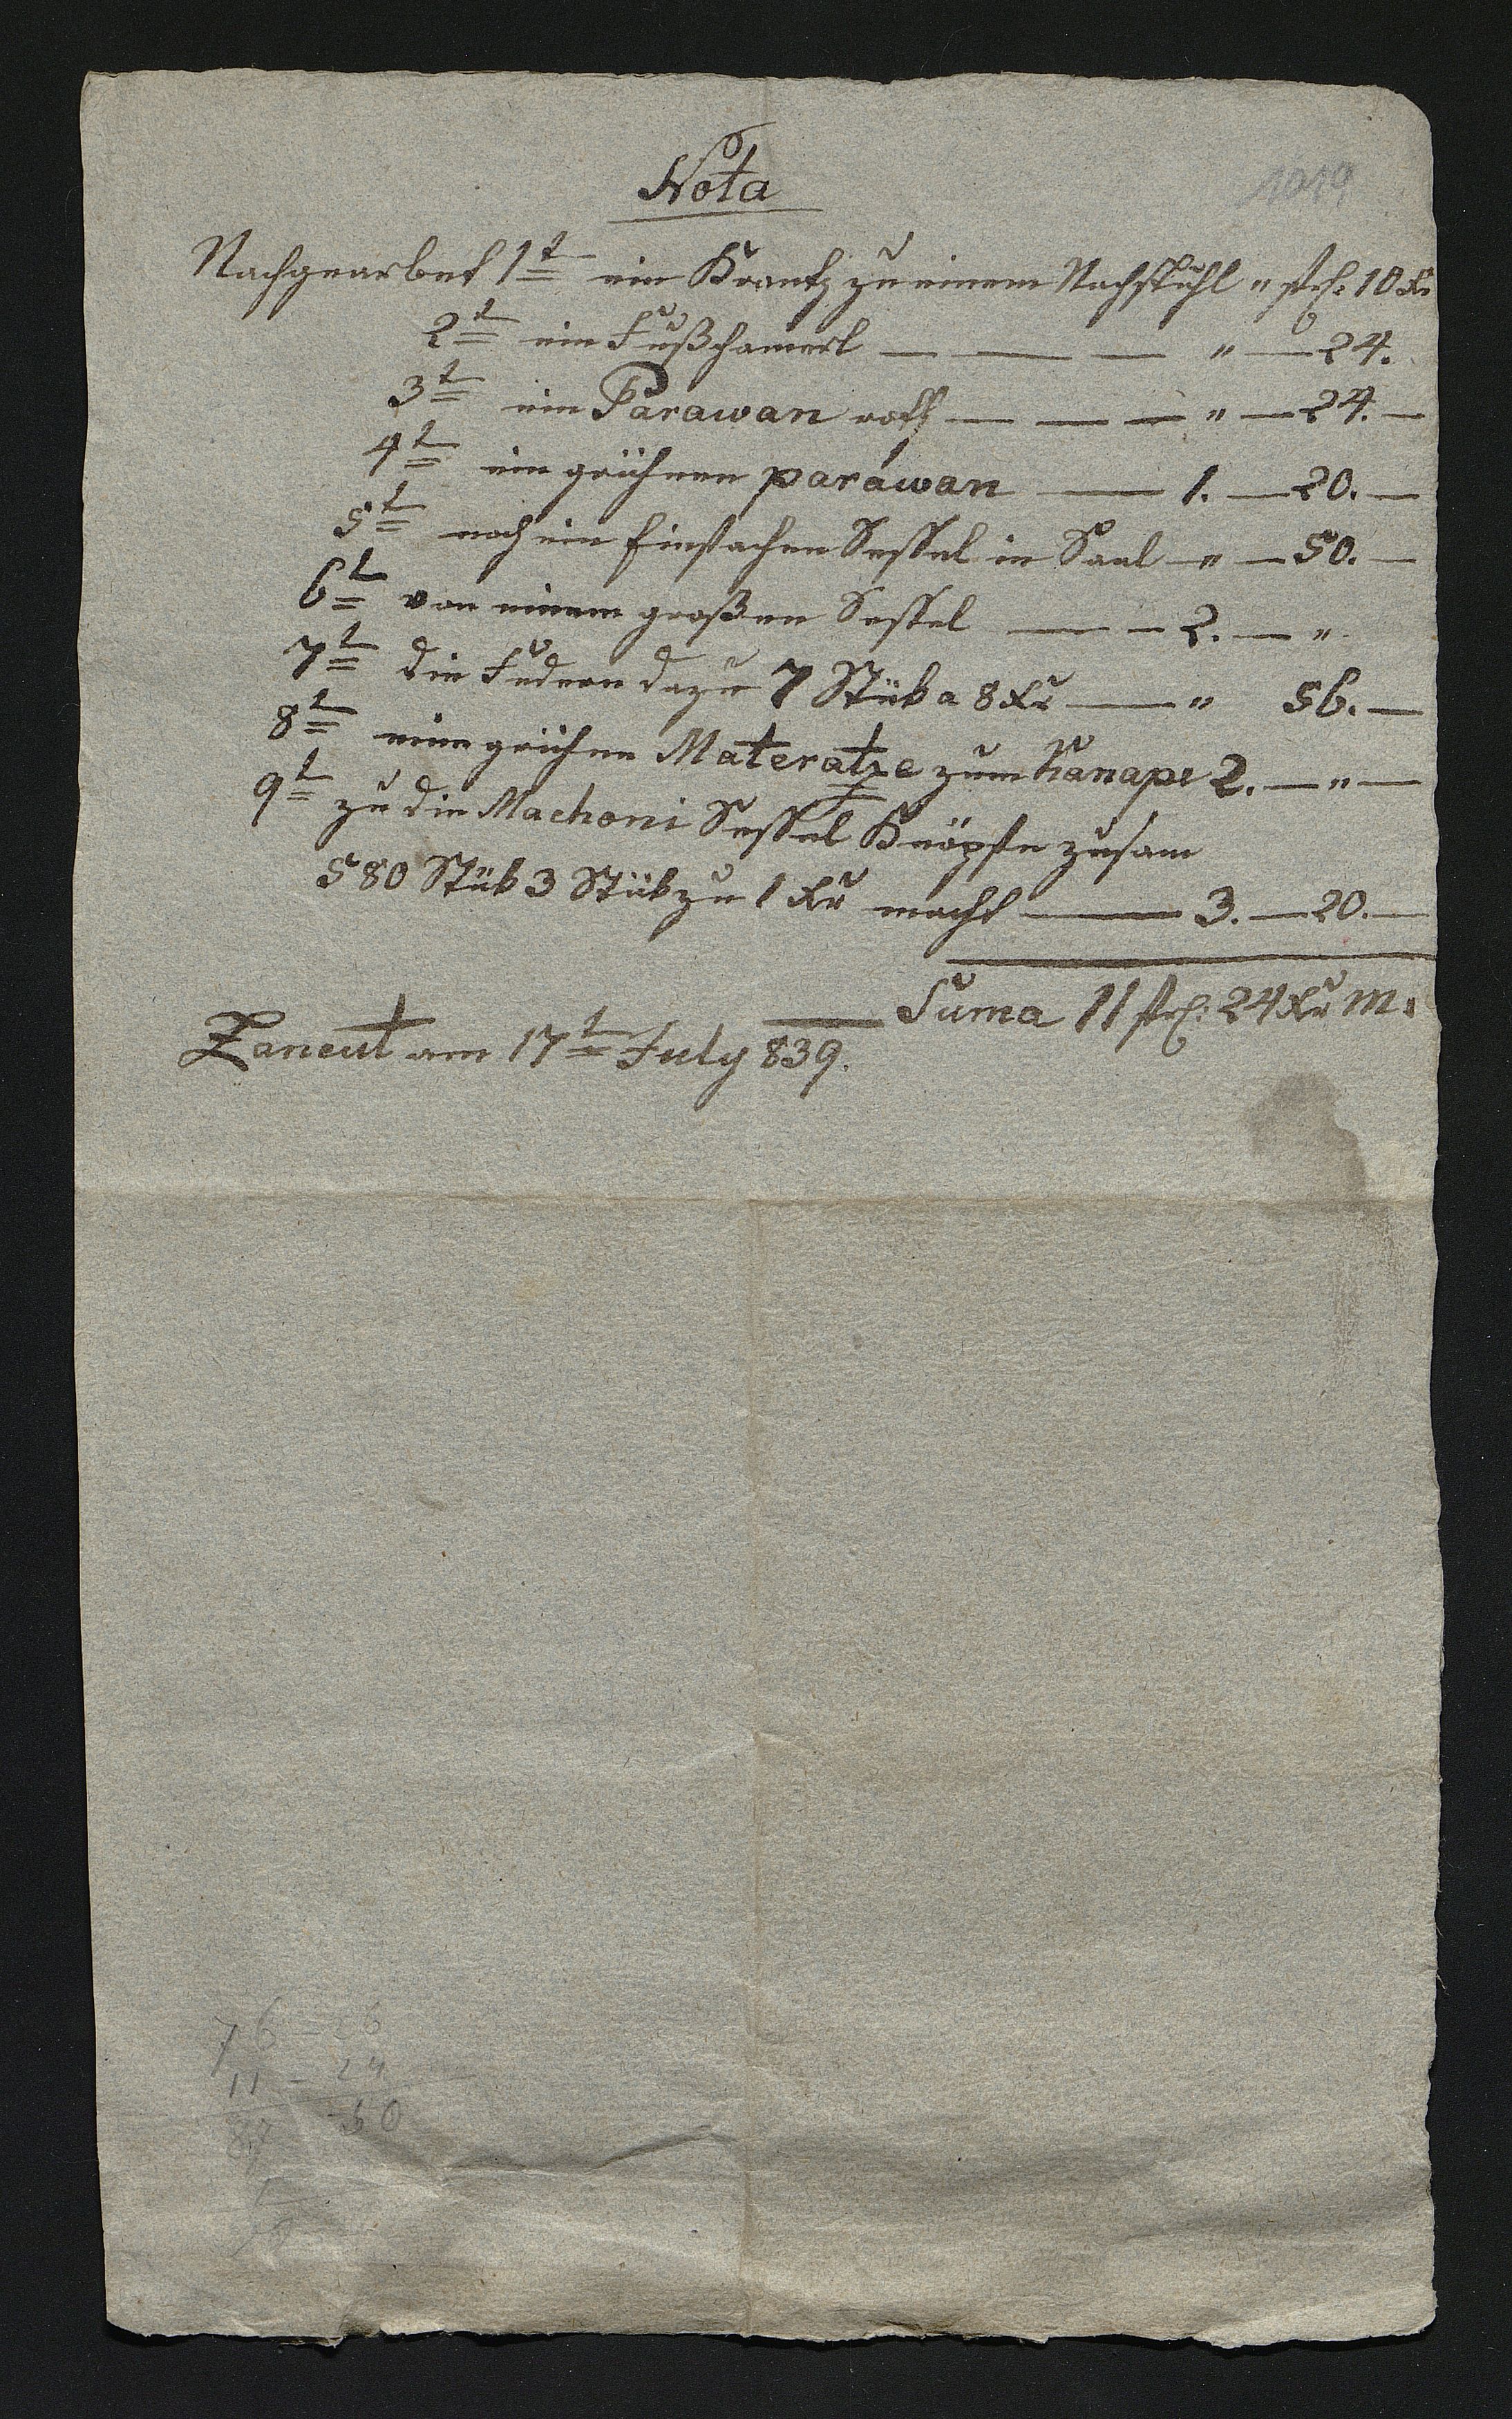 Nota
1019
Nachgearbet 1t ein Krantz zu einem Nachstuhl " fl: 10 Xr
2t ein Fußchamerl — — — " — 24.
3t ein Parawan roth — — — " — 24. —
4t ein grühnen parawan — 1. — 20. —
5t noch ein Einfachen Sessel in Saal — " — 50. —
6t von einem großen Sessel — — 2. — "
7t die Federn dazu 7 Stük a 8 Xr — " 56. —
8t eine grühne Materatze zum Kanape 2. — " —
9t zu die Machoni Sessel Knöpfe zusam
580 Stük 3 Stük zu 1 Xr macht — 3. — 20. —
— Suma 11 fl: 24 Xr M:
Lancut am 17t July 839.
76 — 26
11 — 24
87 50